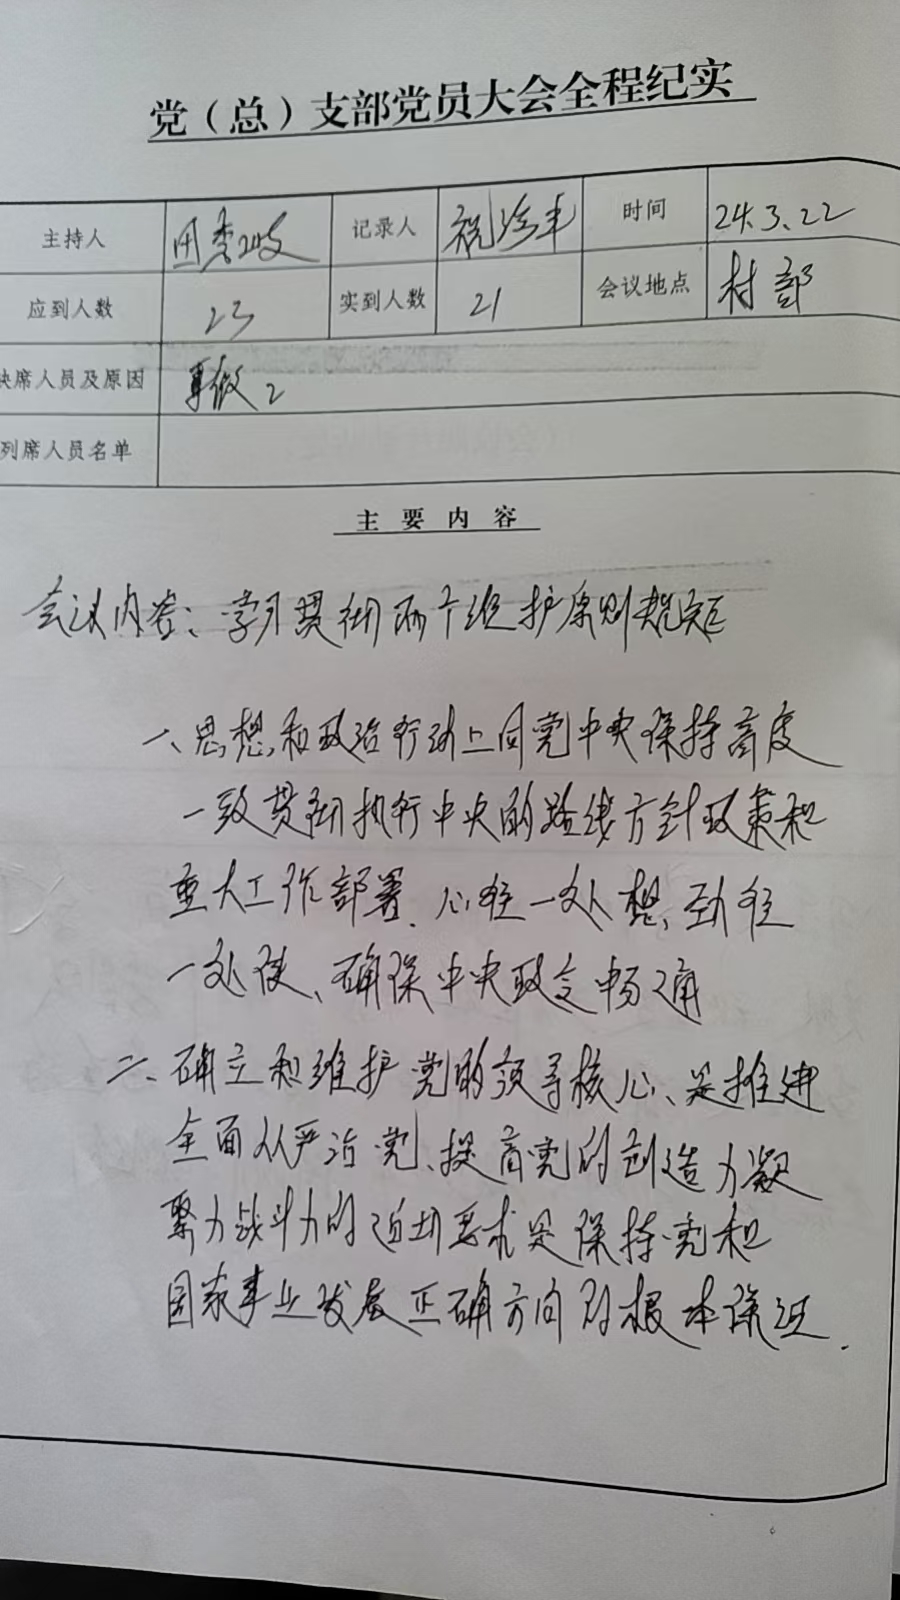 党（总）支部党员大会全程纪实
主持人 田秀 记录人 祝 丰 时间 24.3.22
应到人数 23 实到人数 21 会议地点 村部
缺席人员及原因 事假2
列席人员名单
主要内容
会议内容：学习贯彻两个维护原则规矩
一、思想和政治行动上同党中央保持高度
一致贯彻执行中央的路线方针政策和
重大工作部署、心往一处想、劲往
一处使、确保中央政令畅通
二、确立和维护党的领导核心、是推进
全面从严治党、提高党的创造力凝
聚力战斗力的迫切要求是保持党和
国家事业发展正确方向的根本保证.